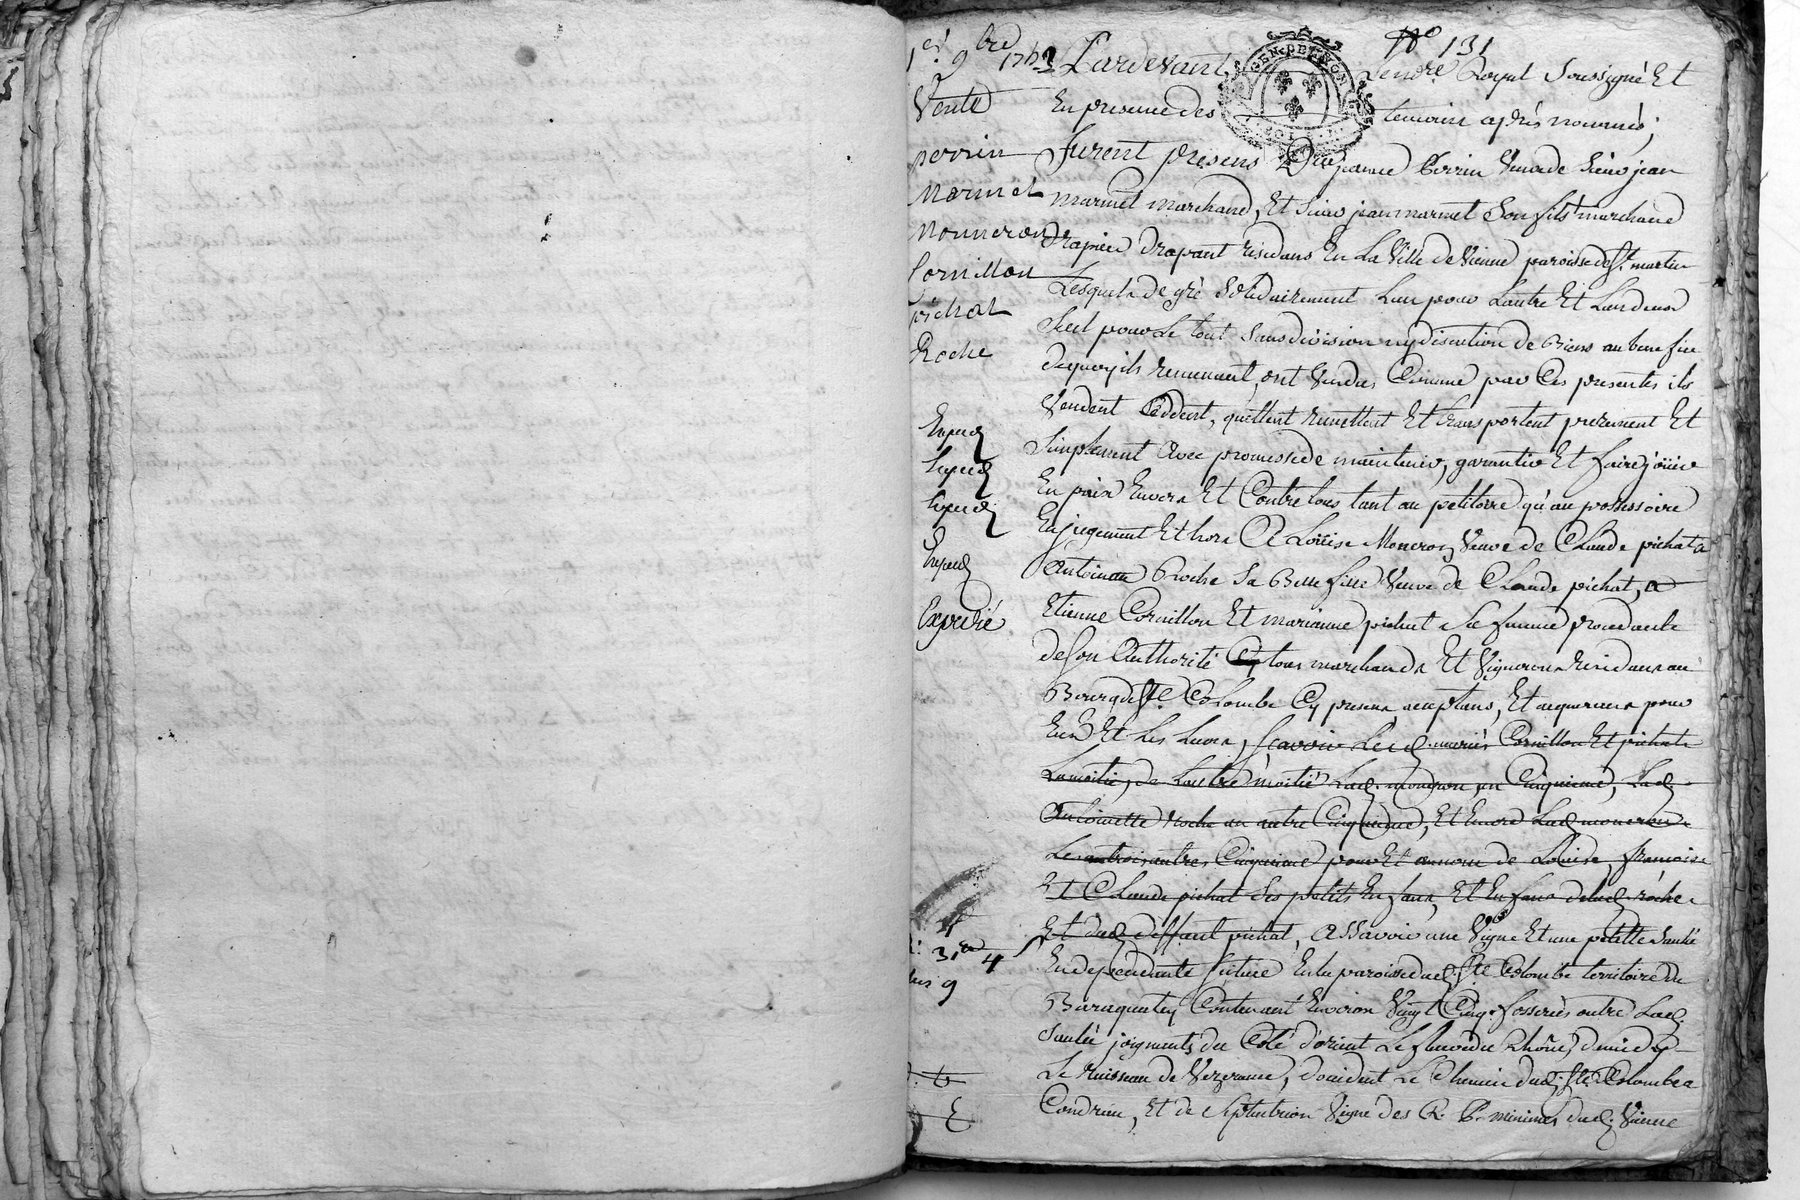 No 131
1er 9bre
Vente
perrin
Marmet
Monneron
Cornillon
pichat
Roche
Expedié
Pardevant Le notre Royal Soussigné Et
En presence des temoins aprés nommés;
furent presens Dlle jeanne Perrin Veuve de Sieur jean
marmet marchand, Et Sieur jean marmet Son fils marchand
drapier drapant residans En La Ville de Vienne paroisse de St. martin
Lesquels de gré Solidairement L'un pour L'autre Et L'un deux
Seul pour Le tout Sans division ny discution de Biens au benefice
dequoy ils renoncent, ont Vendus Comme par Ces presentes ils
Vendent Céddent, quittent remettent Et transportent purement Et
Simplement avec promesse de maintenir, garantir Et faire joüir
En paix Envers Et Contre tous tant au petitoire qu'au possessoire
En jugement Et hors A Loüise Moneron Veuve de Claude pichat a
Antoinette Roche Sa Belle fille Veuve de Claude pichat, a
Etienne Cornillon Et marianne pichat Sa femme procedante
de Son Authorité tous marchands Et Vignerons residans au
Bourg de Ste. Colombe Cy presens acceptans, Et acquereurs pour
Eux Et Les Leurs, Scavoir Lesd. mariés Cornillon Et pichat
La moitié, de L'autre moitié Lad. moneron un Cinquieme, Lad.
Antoinette roche un autre Cinquieme, Et Encore Lad. moneron
Les trois autres Cinquieme pour Et au nom de Loüise, francoise
Et Claude pichat Ses petits Enfans, Et Enfans de lad. roche
Et dud. deffunt pichat, Assavoir une Vigne Et une petitte Saulée
En dependante Située En la paroisse dud. Ste. Colombe territoire de
Contenant Environ Vingt Cinq fosserées outre Lad.
Saulée joignants du Coté d'orient Le fleuve du Rhône, de midy
Le ruisseau de Vezerance, d'occident Le Chemin dud. Ste. Colombe a
Condrieu, Et de Septentrion Vigne des R. P. minimes dud. Vienne